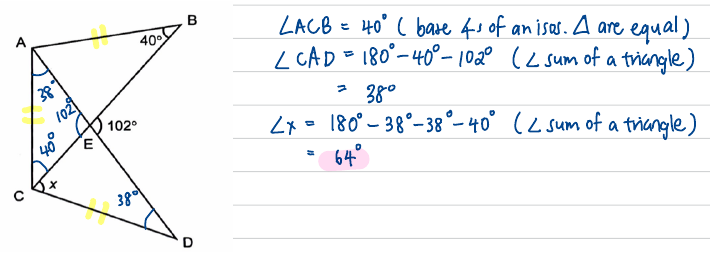 B
A
40°
38°
102°
102°
E
40°
x
C
38°
D
∠ACB = 40° ( base ∠s of an isos. Δ are equal )
∠CAD = 180° - 40° - 102° ( ∠ sum of a triangle )
= 38°
∠x = 180° - 38° - 38° - 40° ( ∠ sum of a triangle )
= 64°